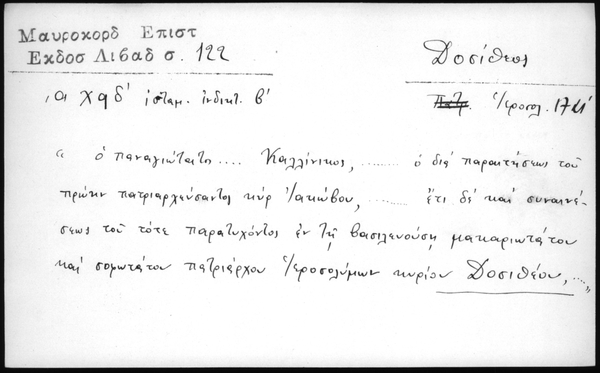 Μαυροκορδ Επιστ
Εκδοσ Λιβαδ σ. 122
Δοσίθεος
͵αχϟδ' ἱσταμ. ἰνδικτ. β'
Πατρ. Ἱεροσολ.
" ὁ παναγιώτατος .... Καλλίνικος, ......... ὁ διὰ παραιτήσεως τοῦ
πρώην πατριαρχεύσαντος κὺρ Ἰακώβου, ......... ἔτι δὲ καὶ συναινέ-
σεως τοῦ τότε παρατυχόντος ἐν τῇ βασιλευούσῃ μακαριωτάτου
καὶ σοφωτάτου πατριάρχου Ἱεροσολύμων κυρίου Δοσιθέου, ....."